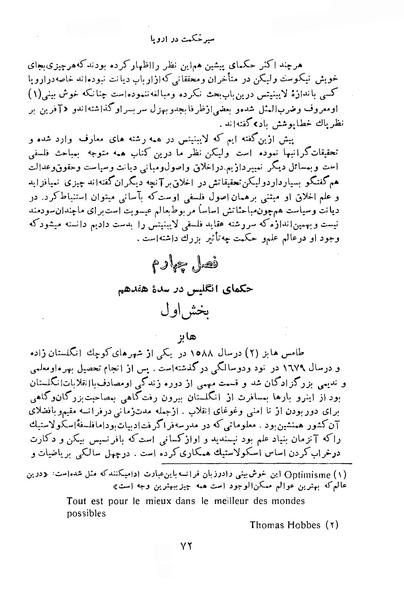 سیر حکمت در اروپا
هرچند اکثر حکمای پیشین هم این نظر را اظهار کرده بودند که هر چیزی بجای
خویش نیکوست ولیکن در متأخران و محققانی که از ارباب دیانت نبوده‌اند خاصه در اروپا
کسی باندازهٔ لایبنیتس درین باب بحث نکرده و مبالغه ننموده است چنانکه خوش بینی (۱)
او معروف و ضرب‌المثل شده و بعضی از ظرفا بجد و بهزل سربسر او گذاشته‌اند و «آفرین بر
نظر پاک خطا پوشش باد» گفته‌اند.
پیش ازین گفته ایم که لایبنیتس در همه رشته های معارف وارد شده و
تحقیقات گرانبها نموده است ولیکن نظر ما درین کتاب همه متوجه بمباحث فلسفی
است و بمسائل دیگر نمیپردازیم. در اخلاق و اصول و مبانی دیانت وسیاست و حقوق و عدالت
هم گفتگو بسیار دارد ولیکن تحقیقاتش در اخلاق بر آنچه دیگران گفته‌اند چیزی نمیافزاید
و علم اخلاق او مبتنی بر همان اصول فلسفی اوست که بآسانی میتوان استنباط کرد. در
دیانت و سیاست هم چون مباحثاتش اساساً مربوط بعالم عیسویت است برای ما چندان سودمند
نیست و بهمین اندازه که سررشته عقاید فلسفی لایبنیتس را بدست دادیم دانسته میشود که
وجود او در عالم علم و حکمت چه تأثیر بزرگ داشته است.
فصل چهارم
حکمای انگلیس در سدهٔ هفدهم
بخش اول
هابز
طامس هابز (۲) در سال ۱۵۸۸ در یکی از شهرهای کوچک انگلستان زاده
و در سال ۱۶۷۹ در نود و دو سالگی در گذشته است. پس از انجام تحصیل بهره او معلمی
و ندیمی بزرگزادگان شد و قسمت مهمی از دوره زندگی او مصادف با انقلابات انگلستان
بود از اینرو بارها بمسافرت از انگلستان بیرون رفت گاهی بمصاحبت بزرگان و گاهی
برای دور بودن از نا امنی و غوغای انقلاب. از جمله مدت زمانی در فرانسه مقیم و با فضلای
آن کشور همنشین بود. معلوماتی که در مدرسه فرا گرفت ادبیات بود اما فلسفهٔ اسکولاستیک
را که آنزمان بنیاد علم بود نپسندید و او از کسانی است که با فرنسیس بیکن و دکارت
در خراب کردن اساس اسکولاستیک همکاری کرده است. در چهل سالگی بریاضیات و
(۱) Optimisme این خوش بینی را در زبان فرانسه باین عبارت ادا میکنند که مثل شده‌است: «درین
عالم که بهترین عوالم ممکن‌الوجود است همه چیز ببهترین وجه است»
Tout est pour le mieux dans le meilleur des mondes
possibles
(۲) Thomas Hobbes
۷۲